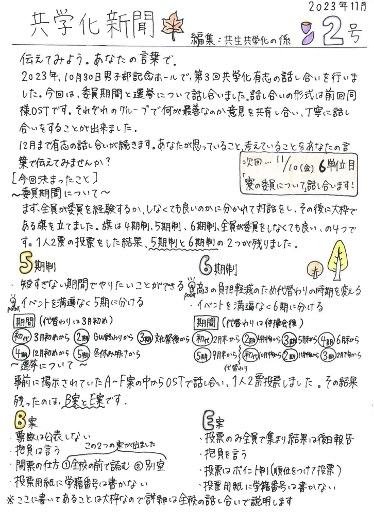 共学化新聞
2023年11月
編集：共生共学化の係
2号
伝えてみよう。あなたの言葉で。
2023年、10月30日男子部記念ホールで、第3回共学化有志の話し合いを行いま
した。今回は、委員期間と選挙について話し合いました。話し合いの形式は前回同
様OSTです。それぞれのグループで何が最善なのか意見を共有し合い、丁寧に話し
合いをすることが出来ました。
12月まで有志の話し合いが続きます。あなたが思っていること、考えていることをあなたの言
葉で伝えてみませんか？
次回… 11/10(金) 6単位目
「寮の委員について」話し合います！
【今回決まったこと】
〜委員期間について〜
まず、全員が委員を経験するか、しなくても良いのかに分かれて対話をし、その後に大枠で
ある案を立てました。案は4期制、5期制、6期制、全員が委員をしなくても良い、の4つで
す。1人2票の投票をした結果、5期制と6期制の2つが残りました。
5期制
・短すぎない期間でやりたいことができる
・イベントを満遍なく5期に分ける
期間（代替わりは3月初め）
初代 3月初めから 2期 3期
4期 12月初めから 5期
6期制
高3の負担軽減のため代替わりの時期を変える
・イベントを満遍なく6期に分ける
期間
初代 2期 3期 4期
5期 6期
〜選挙について〜
事前に掲示されていたA〜F案の中からOSTで話し合い、1人2票投票しました。その結果
残ったのは、B案とE案です。
この2つの案が出ました
B案
・票数は公表しない
・抱負は言う
・開票の仕方 ①全校の前で読む ②別室
・投票用紙に学籍番号は書かない
E案
・投票のみ全員で集まり結果は後日報告
・抱負を言う
・投票はポイント制（順位をつけて投票）
・投票用紙に学籍番号は書かない
※ここに書いてあることは大枠なので詳細は全校の話し合いで説明します